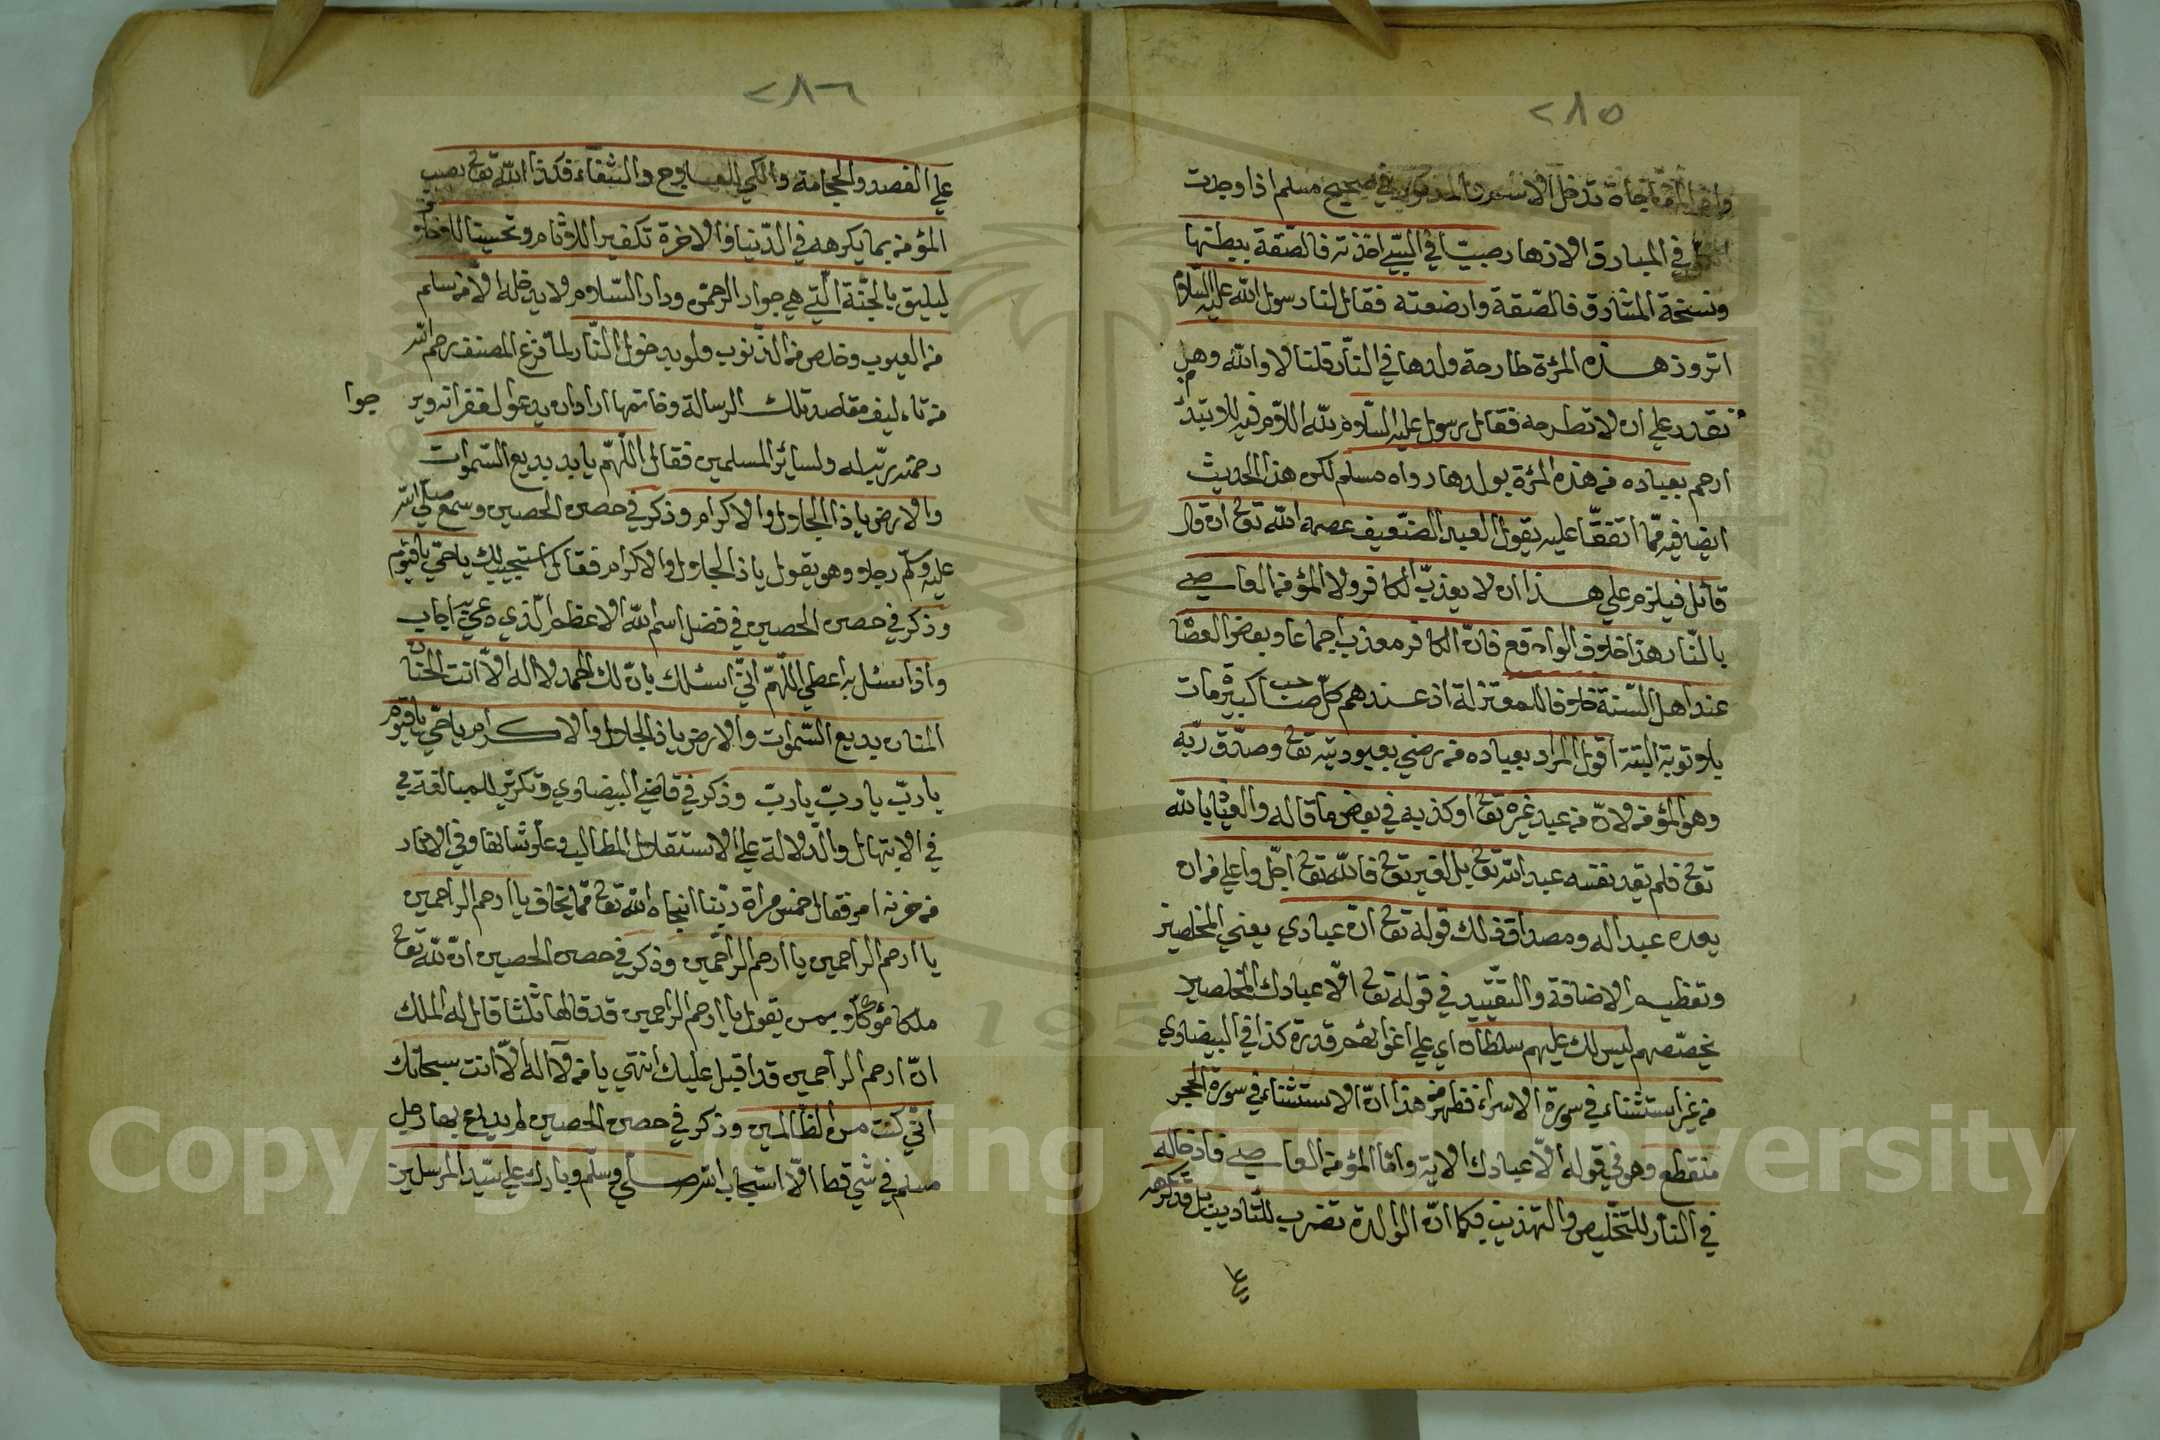 ٢٨٥
تدخل الاسمية المذكور في صحيح مسلم اذا وجدت
في المبارق الازهار صبيّا في السّبي اخذته فالصقته ببطنها
ونسخة المشارق فالصقته وارضعته فقال لنا رسول الله عليه السّلام
اترون هذه المرءة طارحة ولدها في النّار قلنا لا والله وهي
تقدر على ان لا تطرحه فقال رسول عليه السّلام لله اللام فيه للابتداء
ارحم بعباده من هذه المرءة بولدها رواه مسلم لكن هذا الحديث
ايضا فيه ممّا اتفقا عليه يقول العبد الضّعيف عصمه الله تعالى ان قال
قائل فيلزم على هذا ان لا يعذّب الكافر ولا المؤمن العاصي
بالنّار هذا خلاف الواقع فانّ الكافر معذب اجماعا وبعض العصاة
عند اهل السّنة خلافا للمعتزلة اذ عندهم كلّ صاحب كبيرة مات
بلا توبة البتة اقول المراد بعباده من رضي بعبوديته تعالى وصدّق ربّه
وهو المؤمن لانّ من عبد غيره تعالى او كذبه في بعض ما قاله والعياذ بالله
تعالى فلم يعد نفسه عبد الله تعالى بل لغيره تعالى فالله تعالى اجلّ واعلى من ان
يعده عبدا له ومصداق ذلك قوله تعالى انّ عبادي يعني المخلصين
وتعظيم الاضافة والتقييد في قوله تعالى الّا عبادك المخلصين
يخصّصهم ليس لك عليهم سلطان اي على اغوائهم قدرة كذا في البيضاوي
من غير استثناء في سورة الاسراء فظهر من هذا انّ الاستثناء في سورة الحجر
منقطع وهو في قوله الّا عبادك الاية وامّا المؤمن العاصي فادخاله
في النّار للتخليص والتهذيب كما انّ الوالدة تضرب للتأديب بل قد تكرهه
على
٢٨٦
على الفصد والحجامة والكي للعلاج والشفاء فكذا الله تعالى يصيب
المؤمن بما يكرهه في الدّنيا والاخرة تكفيرا للاثام وتحسينا للاخلاق
ليليق بالجنّة الّتي هي جوار الرحمن ودار السّلام ولا يدخله الّا من سلم
من العيوب وخلص من الذنوب ولو بدخول النّار لما فرغ المصنف رحمه الله
من تأليف مقاصد تلك الرسالة وخاتمتها اراد ان يدعو لغفرانه ويرجوا
رحمته ربّه له ولسائر المسلمين فقال اللّهمّ يا بديع السّموات
والارض يا ذا الجلال والاكرام وذكر في حصن الحصين وسمع صلّى الله
عليه وسلّم رجلا وهو يقول يا ذا الجلال والاكرام فقال استجيب لك يا حيّ يا قيّوم
وذكر في حصن الحصين في فضل اسم الله الاعظم الّذي اذا دعي به اجاب
واذا سئل به اعطى اللّهمّ انّي اسئلك بانّ لك الحمد لا اله الّا انت الحنّان
المنان بديع السّموات والارض يا ذا الجلال والاكرام يا حيّ يا قيّوم
يا ربّ يا ربّ يا ربّ وذكر في قاضي البيضاوي وتكرير للمبالغة في
في الابتهال والدّلالة على الاستقلال المطالب وعلوّ شانها وفي الاثار
من حزنه امر فقال خمس مرات ربّنا انجاه الله تعالى ممّا يخاف يا ارحم الراحمين
يا ارحم الراحمين يا ارحم الراحمين وذكر في حصن الحصين انّ لله تعالى
ملكا مؤكلا بمن يقول يا ارحم الراحمين قد قالها ثلثا قال له الملك
انّ ارحم الراحمين قد اقبل عليك انتهى يا من لا اله الّا انت سبحانك
انّي كنت من الظالمين وذكر في حصن الحصين لم يدع بها رجل
مسلم في شئ قط الّا استجاب الله صلّى وسلّم وبارك على سيّد المرسلين
Copyright © King Saud University
195